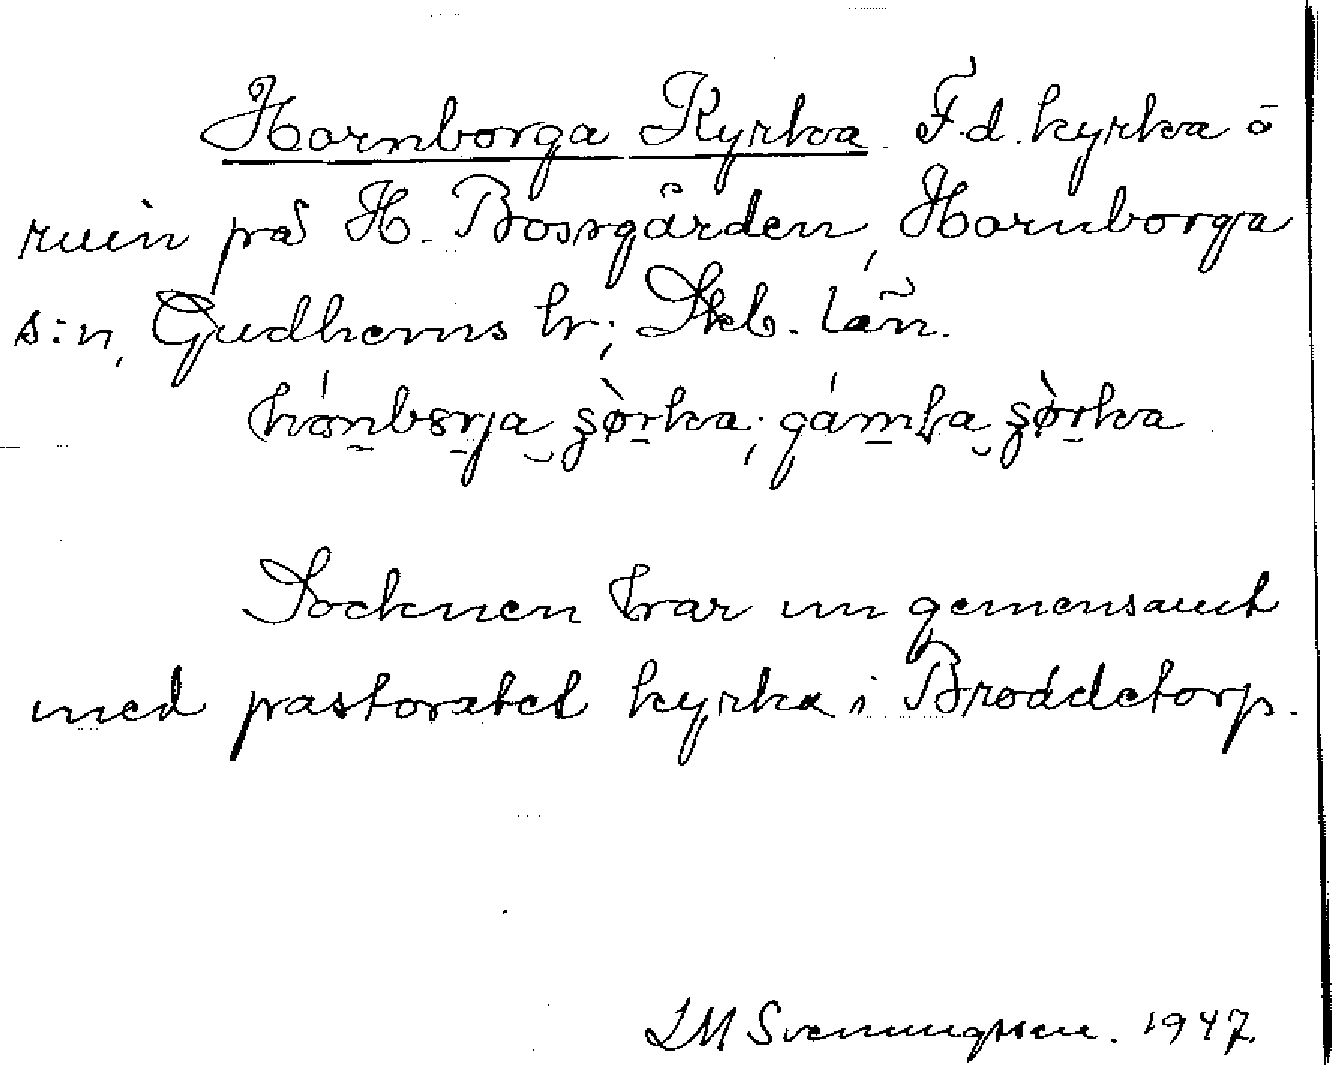 Hornborga Kyrka. F.d. kyrka ö
ruin på H. Bossgården, Hornborga
s:n, Gudhems hr; Skb. län.
Socknen har nu gemensamt
med pastoratet kyrka i Broddetorp.
LM Svenungsson. 1947.